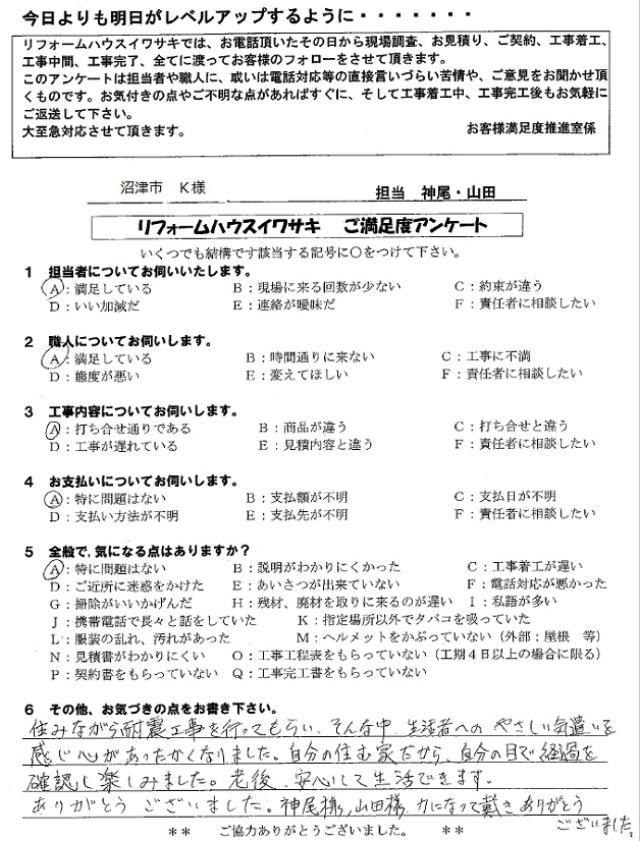 今日よりも明日がレベルアップするように・・・・・・・
リフォームハウスイワサキでは、お電話頂いたその日から現場調査、お見積り、ご契約、工事着工、
工事中間、工事完了、全てに渡ってお客様のフォローをさせて頂きます。
このアンケートは担当者や職人に、或いは電話対応等の直接言いづらい苦情や、ご意見をお聞かせ頂
くものです。お気付きの点やご不明な点があればすぐに、そして工事着工中、工事完工後もお気軽に
ご返送して下さい。
大至急対応させて頂きます。 お客様満足度推進室係
沼津市 K様 担当 神尾・山田
リフォームハウスイワサキ ご満足度アンケート
いくつでも結構です該当する記号に〇をつけて下さい。
1 担当者についてお伺いいたします。
A：満足している B：現場に来る回数が少ない C：約束が違う
D：いい加減だ E：連絡が曖昧だ F：責任者に相談したい
2 職人についてお伺いします。
A：満足している B：時間通りに来ない C：工事に不満
D：態度が悪い E：変えてほしい F：責任者に相談したい
3 工事内容についてお伺いします。
A：打ち合せ通りである B：商品が違う C：打ち合せと違う
D：工事が遅れている E：見積内容と違う F：責任者に相談したい
4 お支払いについてお伺いします。
A：特に問題はない B：支払額が不明 C：支払日が不明
D：支払い方法が不明 E：支払先が不明 F：責任者に相談したい
5 全般で、気になる点はありますか？
A：特に問題はない B：説明がわかりにくかった C：工事着工が遅い
D：ご近所に迷惑をかけた E：あいさつが出来ていない F：電話対応が悪かった
G：掃除がいいかげんだ H：残材、廃材を取りに来るのが遅い I：私語が多い
J：携帯電話で長々と話をしていた K：指定場所以外でタバコを吸っていた
L：服装の乱れ、汚れがあった M：ヘルメットをかぶっていない（外部：屋根 等）
N：見積書がわかりにくい O：工事工程表をもらっていない（工期４日以上の場合に限る）
P：契約書をもらっていない Q：工事完工書をもらっていない
6 その他、お気づきの点をお書き下さい。
住みながら耐震工事を行ってもらい、そんな中、生活者への やさしい気遣いを
感じ心があったかくなりました。自分の住む家だから、自分の目で経過を
確認し楽しみました。老後、安心して生活できます。
ありがとう ございました。神尾様、山田様 力になって戴き ありがとう
ございました。
** ご協力ありがとうございました。 **